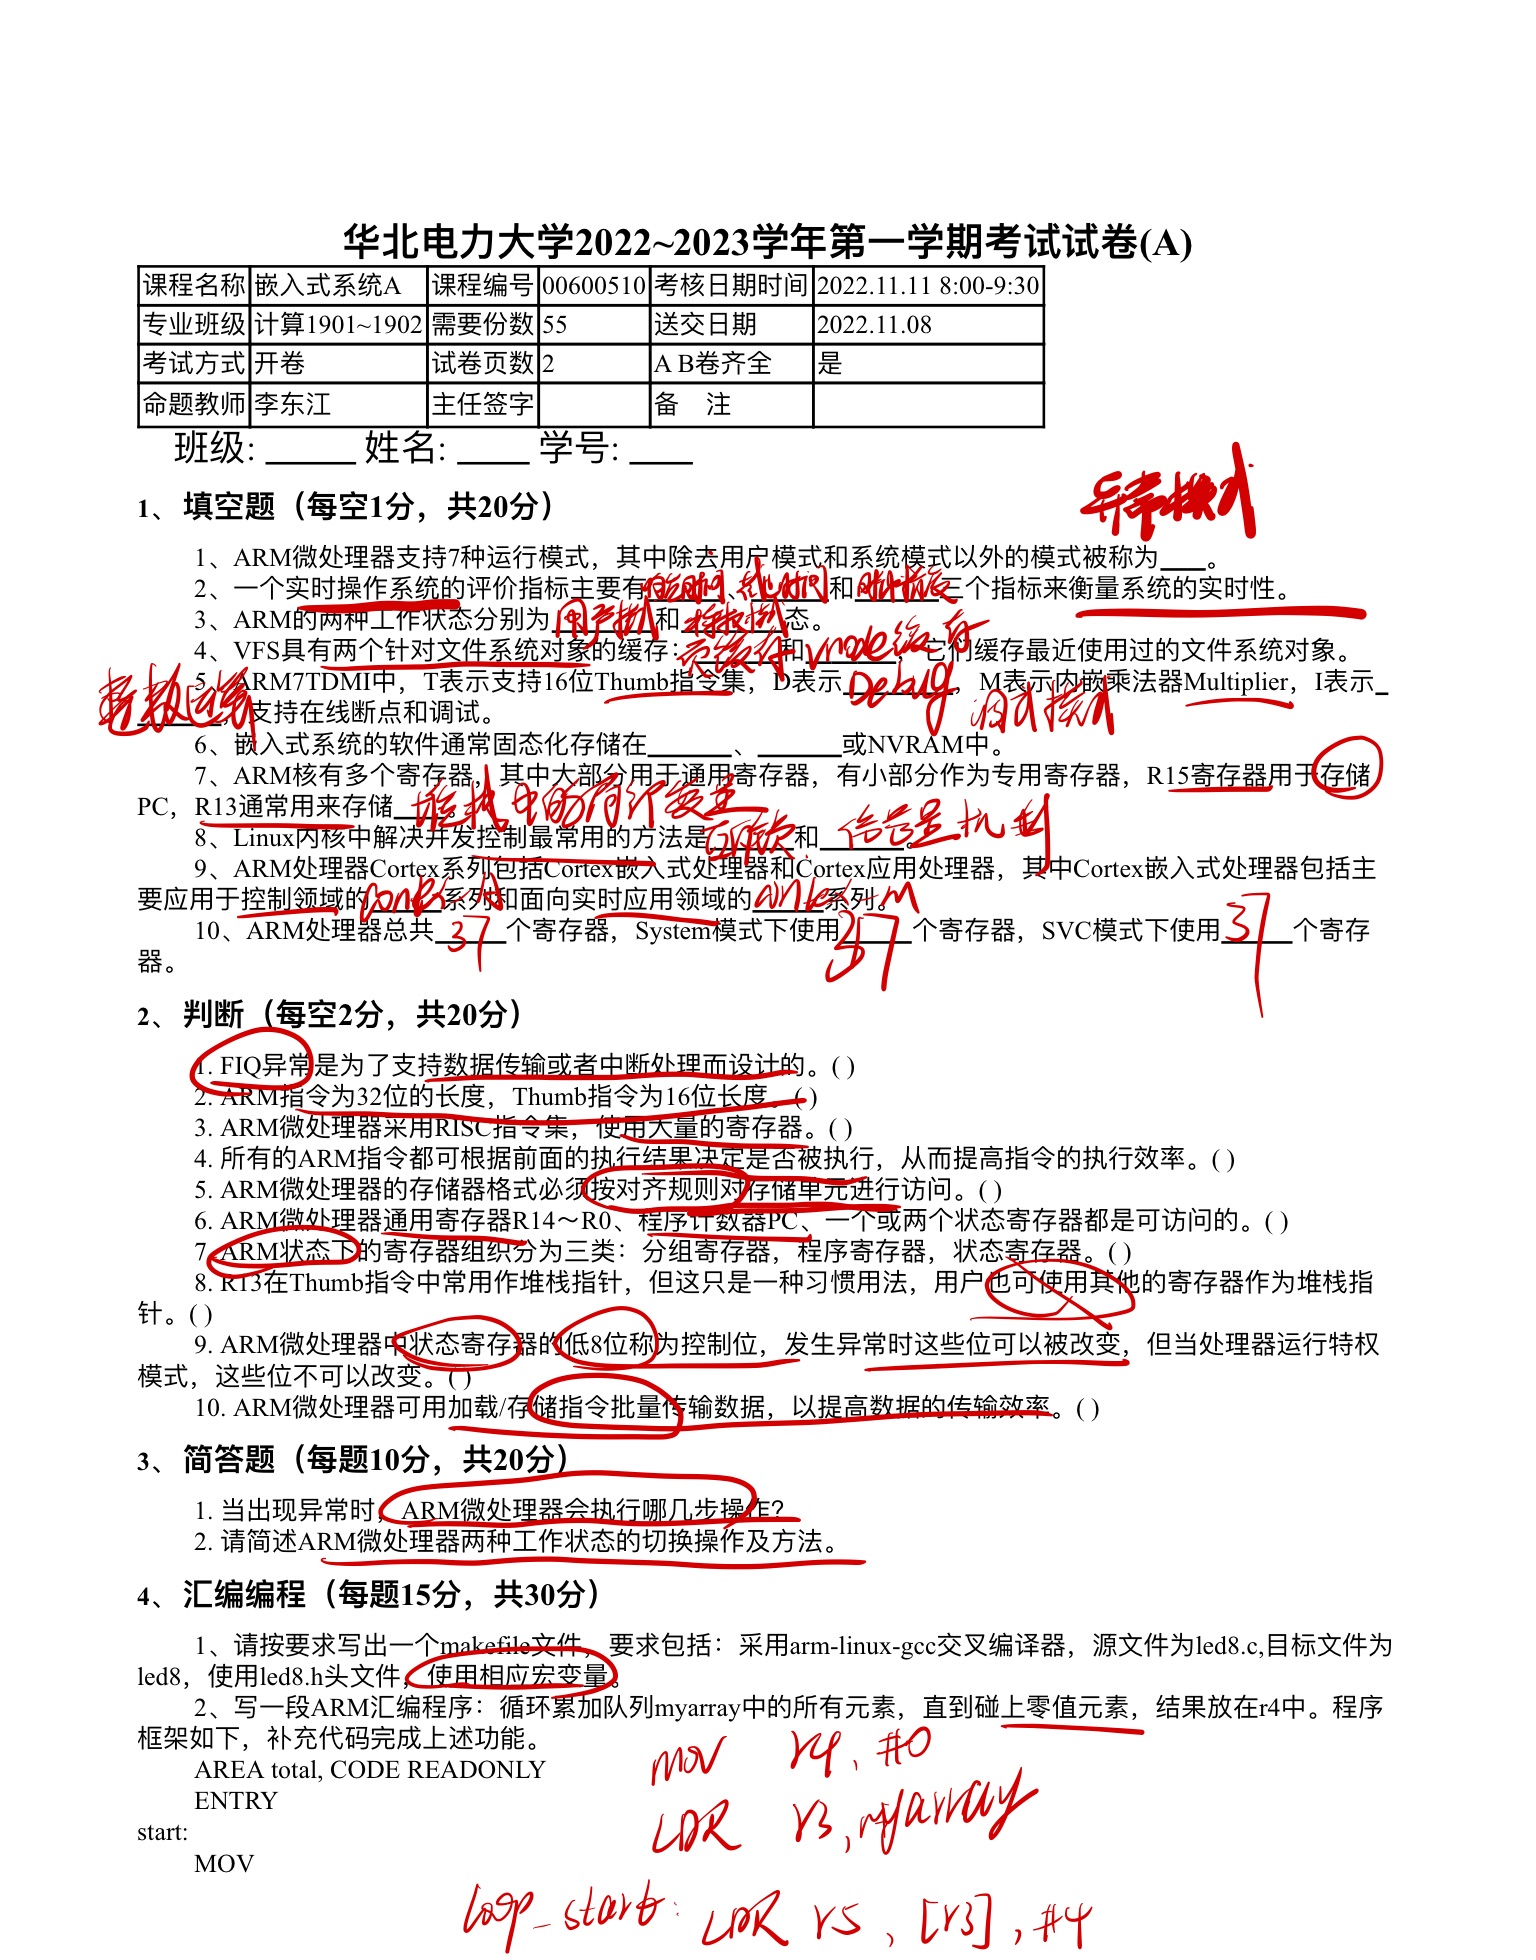 华北电力大学2022~2023学年第一学期考试试卷(A)
课程名称 嵌入式系统A 课程编号 00600510 考核日期时间 2022.11.11 8:00-9:30
专业班级 计算1901~1902 需要份数 55 送交日期 2022.11.08
考试方式 开卷 试卷页数 2 A B卷齐全 是
命题教师 李东江 主任签字 备 注
班级: _____ 姓名: ____ 学号: ____
异常模式
1、 填空题（每空1分，共20分）
1、ARM微处理器支持7种运行模式，其中除去用户模式和系统模式以外的模式被称为____。
2、一个实时操作系统的评价指标主要有、和三个指标来衡量系统的实时性。
3、ARM的两种工作状态分别为和态。
4、VFS具有两个针对文件系统对象的缓存：页缓存和vnode缓存，它们缓存最近使用过的文件系统对象。
5、ARM7TDMI中，T表示支持16位Thumb指令集，D表示Debug，M表示内嵌乘法器Multiplier，I表示_
______，支持在线断点和调试。
6、嵌入式系统的软件通常固态化存储在______、______或NVRAM中。
7、ARM核有多个寄存器，其中大部分用于通用寄存器，有小部分作为专用寄存器，R15寄存器用于存储
PC，R13通常用来存储____。
8、Linux内核中解决并发控制最常用的方法是和信号量机制。
9、ARM处理器Cortex系列包括Cortex嵌入式处理器和Cortex应用处理器，其中Cortex嵌入式处理器包括主
要应用于控制领域的cortex-A系列和面向实时应用领域的cortex-M系列。
10、ARM处理器总共37个寄存器，System模式下使用37个寄存器，SVC模式下使用37个寄存
器。
2、 判断（每空2分，共20分）
1. FIQ异常是为了支持数据传输或者中断处理而设计的。( )
2. ARM指令为32位的长度，Thumb指令为16位长度。( )
3. ARM微处理器采用RISC指令集，使用大量的寄存器。( )
4. 所有的ARM指令都可根据前面的执行结果决定是否被执行，从而提高指令的执行效率。( )
5. ARM微处理器的存储器格式必须按对齐规则对存储单元进行访问。( )
6. ARM微处理器通用寄存器R14～R0、程序计数器PC、一个或两个状态寄存器都是可访问的。( )
7. ARM状态下的寄存器组织分为三类：分组寄存器，程序寄存器，状态寄存器。( )
8. R13在Thumb指令中常用作堆栈指针，但这只是一种习惯用法，用户也可使用其他的寄存器作为堆栈指
针。( )
9. ARM微处理器中状态寄存器的低8位称为控制位，发生异常时这些位可以被改变，但当处理器运行特权
模式，这些位不可以改变。( )
10. ARM微处理器可用加载/存储指令批量传输数据，以提高数据的传输效率。( )
3、 简答题（每题10分，共20分）
1. 当出现异常时，ARM微处理器会执行哪几步操作？
2. 请简述ARM微处理器两种工作状态的切换操作及方法。
4、 汇编编程（每题15分，共30分）
1、请按要求写出一个makefile文件，要求包括：采用arm-linux-gcc交叉编译器，源文件为led8.c,目标文件为
led8，使用led8.h头文件，使用相应宏变量。
2、写一段ARM汇编程序：循环累加队列myarray中的所有元素，直到碰上零值元素，结果放在r4中。程序
框架如下，补充代码完成上述功能。
AREA total, CODE READONLY
mov r4, #0
ENTRY
LDR r3, myarray
start:
MOV
loop_start: LDR r5, [r3], #4